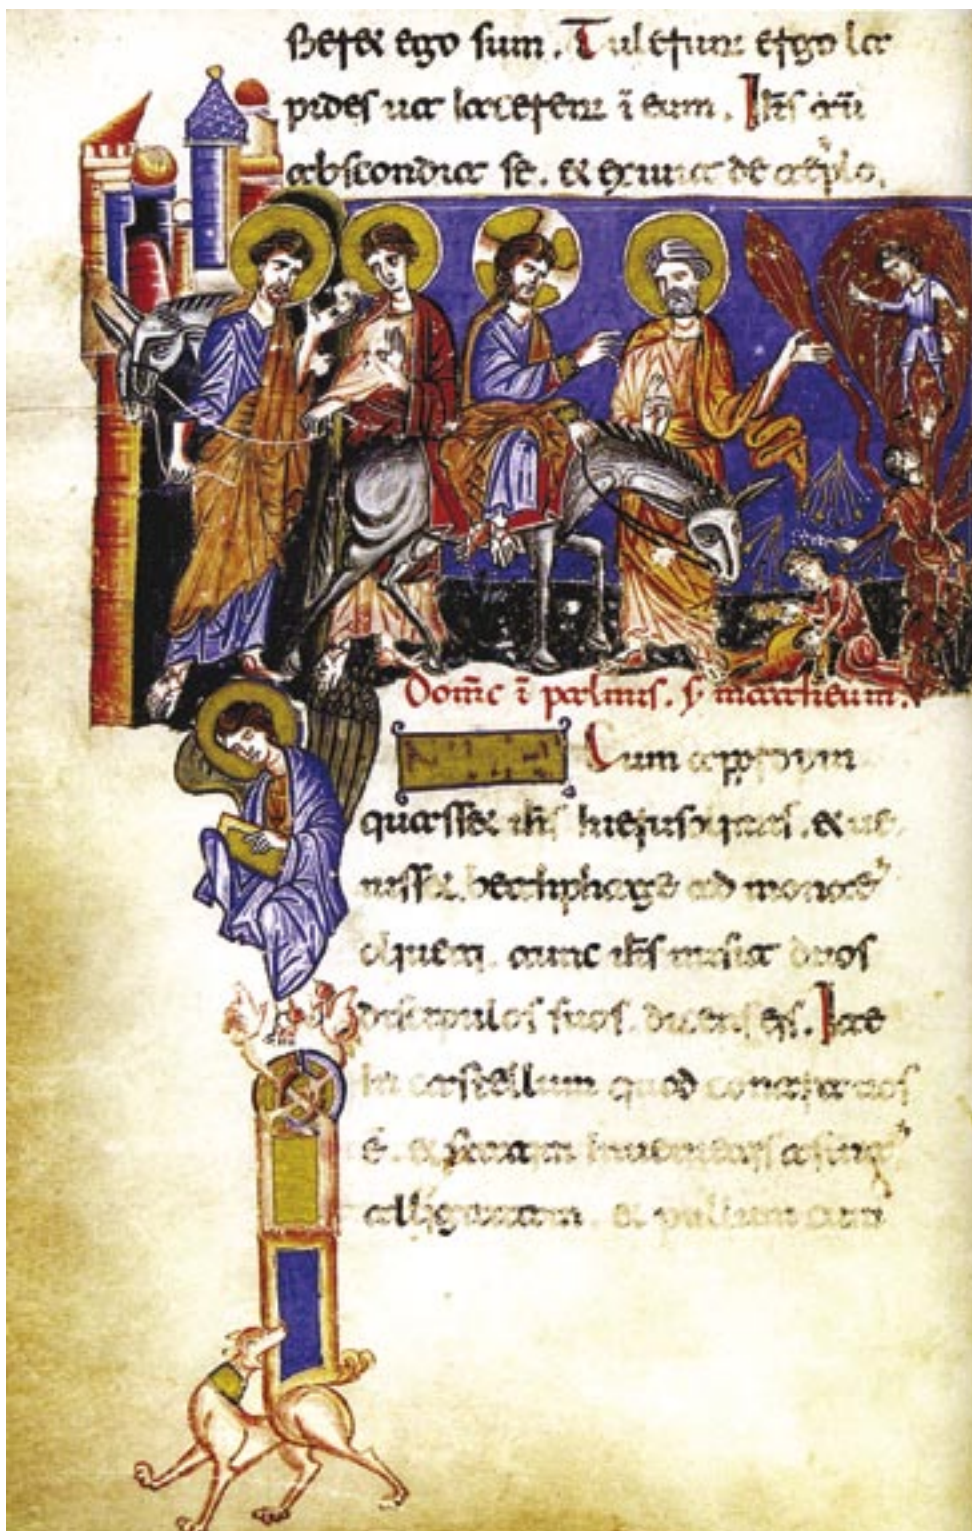 fieret ego sum. Tulerunt ergo la
pides ut iacerent ī eum. Ih̄s aū
abscondit se. & exiuit de tēplo.
Dom̄c ī palmis. s̄ matheum.
Cum appropin
quasset ih̄s hierusolymis. & ue
nisset bethphage ad montē
oliueti. tunc ih̄s misit duos
discipulos suos. dicens eis. Ite
in castellum quod contra uos
ē. & statim inuenietis asinā
alligatam. & pullum cum